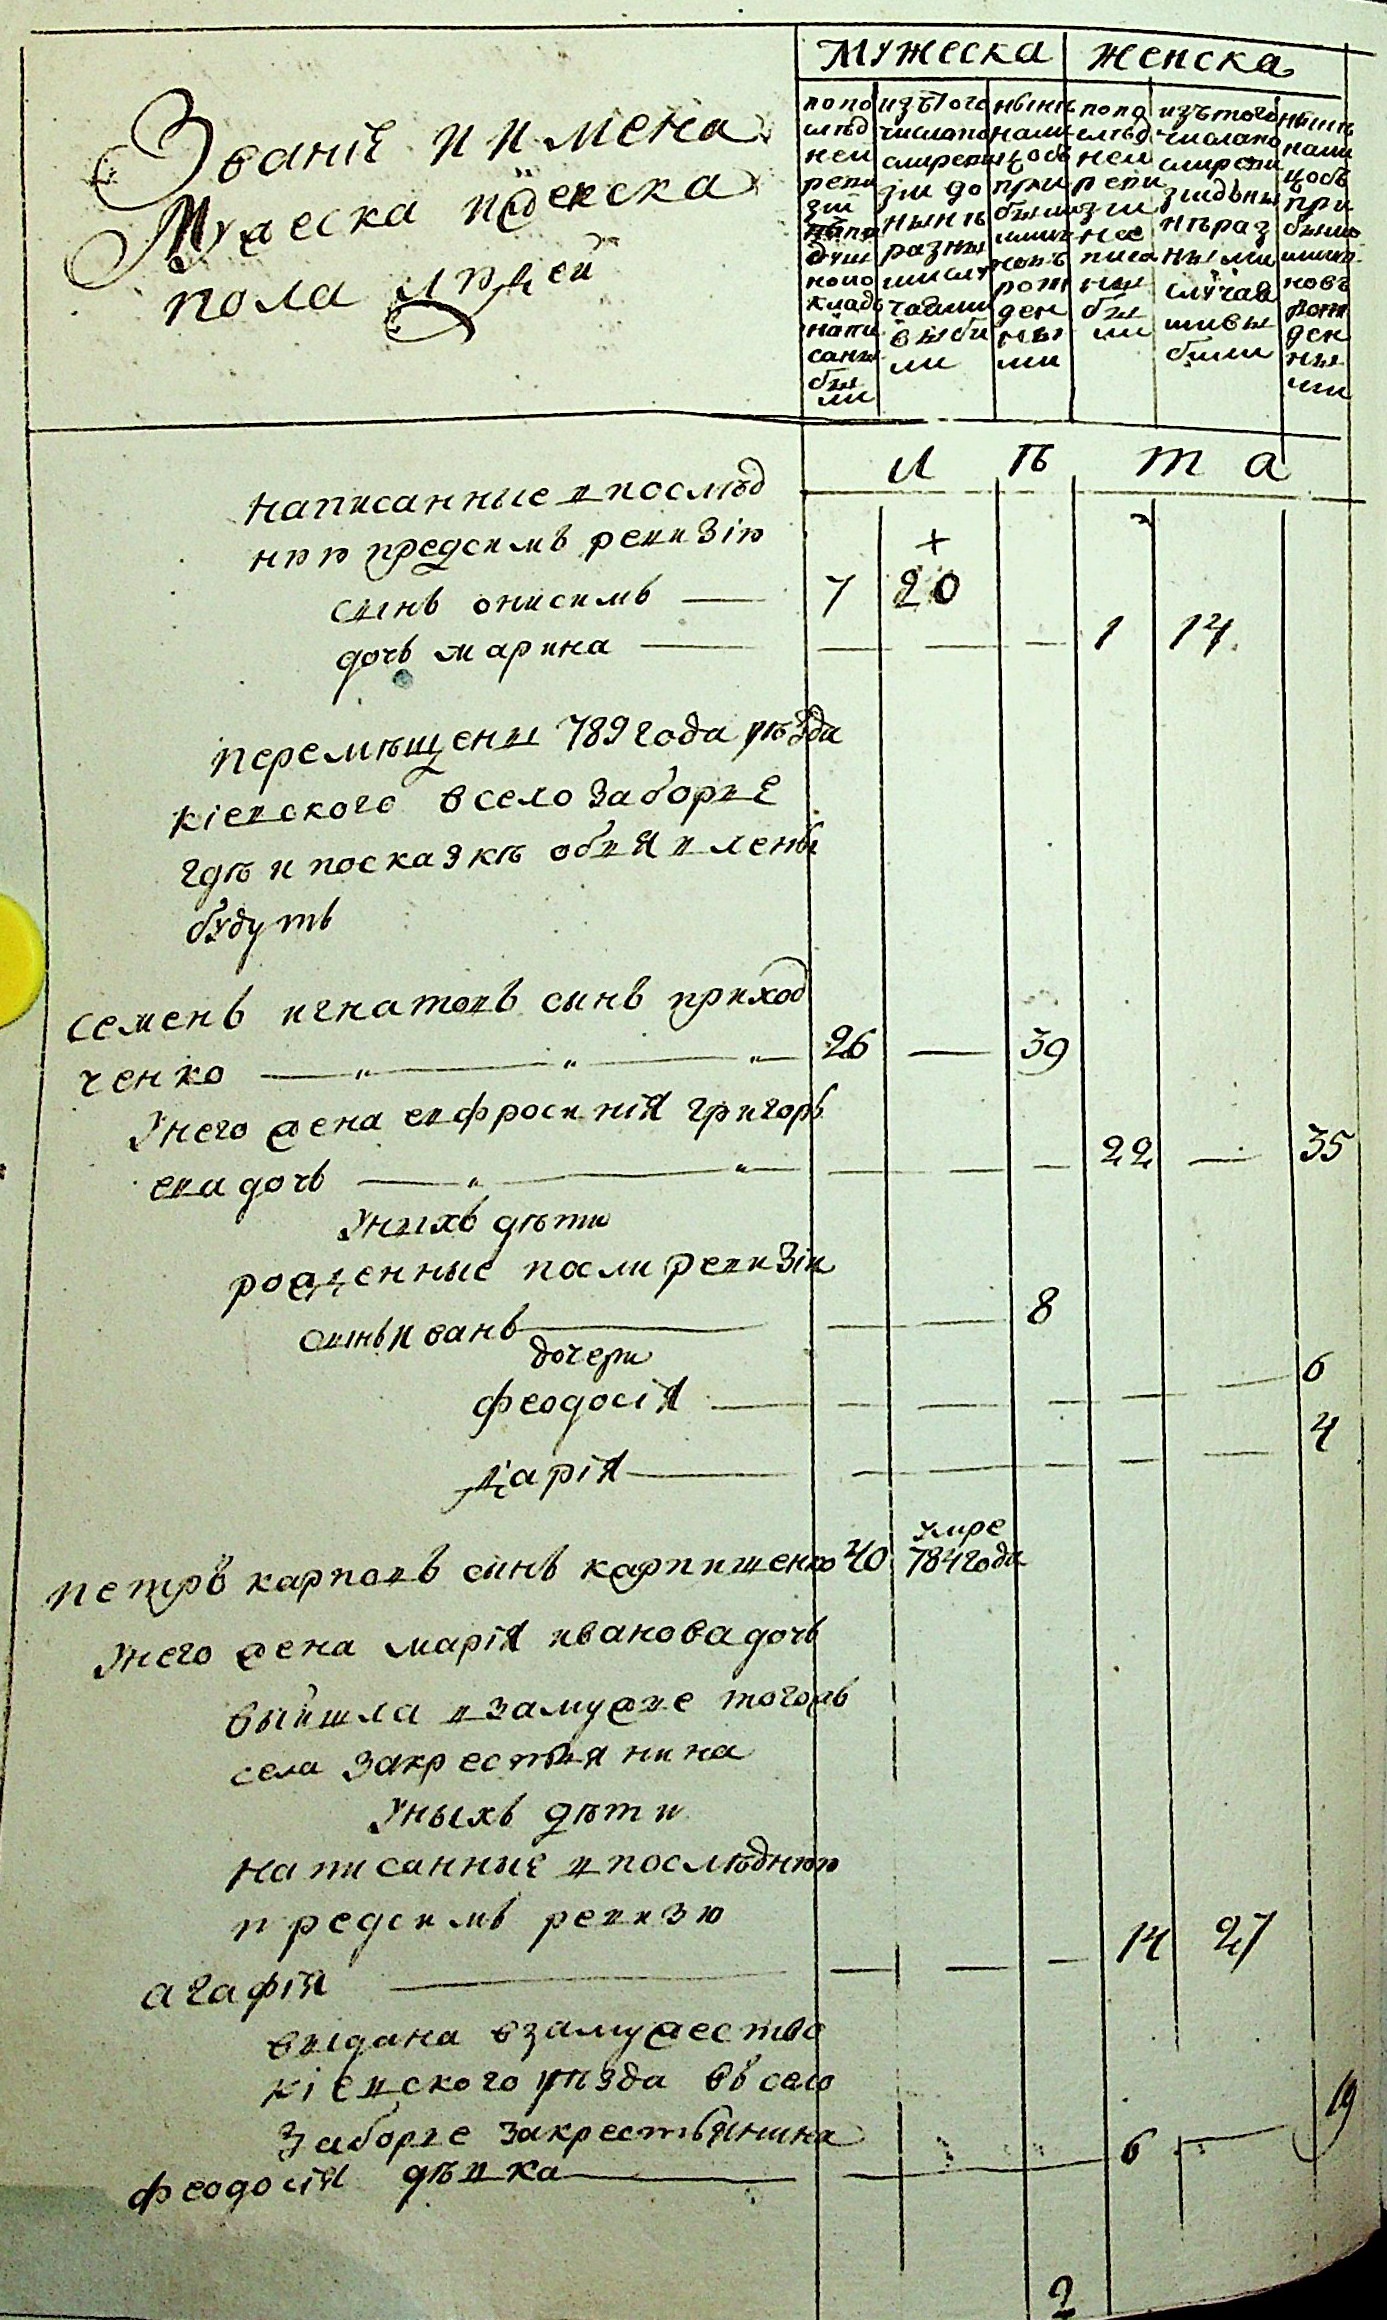 Званіе и имена
Мужеска и женска
пола людей
мужеска женска
попо слѣд ней реви зіи на по душ ному о кладѣ напи саны бы ли
изъ того числа по слѣ реви зіи до нынѣ разны ми слу чаями выбы ли
нынѣ нали цо съ при былы ми и новъ рож ден ны ми
по по слѣд ней реви зіи на писа ны бы ли
изъ того числа по слѣ реви зіи до ны нѣ раз ными случая ми вы были
нынѣ нали цо съ при былы ми и новъ рож ден ны ми
л ѣ т а
написанные в послѣд
нюю предсимъ ревизію
сынъ онисимъ — 7 20 +
дочь марина — 1 14
перемѣщены 789 года уѣзда
кіевского в село заборье
гдѣ и по сказкѣ объявлены
будутъ
семенъ игнатовъ сынъ приход
ченко — 26 — 39
у него жена евфросинія григорь
ева дочь — 22 — 35
у ныхъ дѣти
рожденные посли ревизіи
сынъ иванъ — 8
дочери
феодосія — 6
дарія — 4
петръ карповъ сынъ карпишенко 40 умре 784 года
у него жена марія иванова дочь
вышла в замужье тогожъ
села за крестьянина
у ныхъ дѣти
написанные в послѣднюю
предсимъ ревизю
агафія — 14 27
выдана в замужество
кіевского уѣзда въ село
заборье за крестьянина
феодосія дѣвка — 6 — 19
2